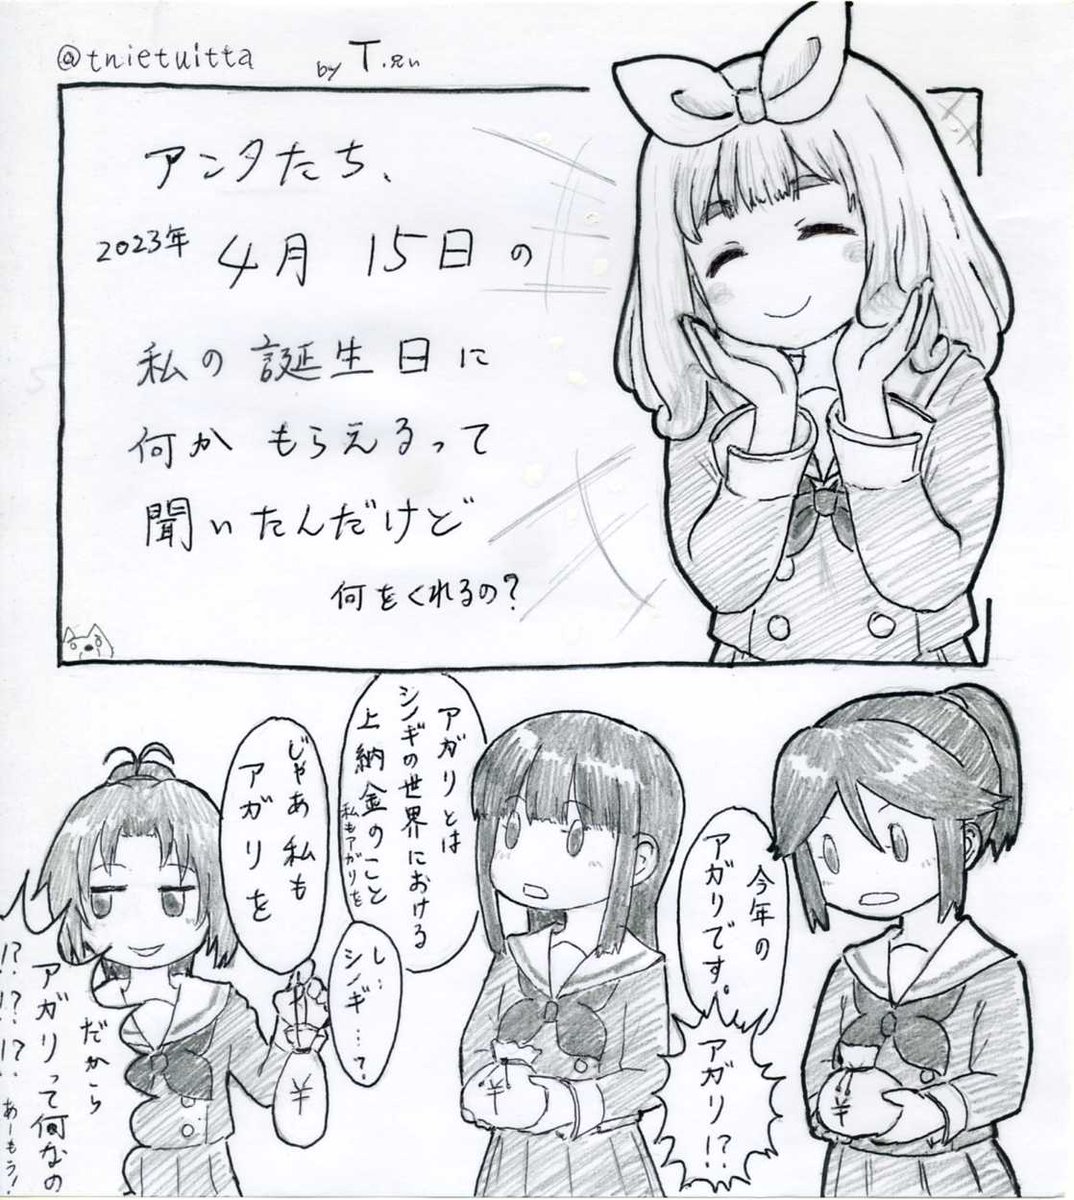 @tnietuitta
by T.れい
アンタたち、
2023年 4月 15日の
私の誕生日に
何かもらえるって
聞いたんだけど
何をくれるの?
今年の
アガリです。
アガリ!?
アガリとは
シノギの世界における
上納金のこと
私もアガリを
し…
シノギ…?
じゃあ私も
アガリを
だから
アガリって何なの
!?!?!?
あーもう!